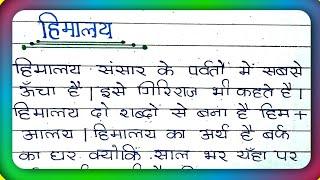 हिमालय
हिमालय संसार के पर्वतो में सबसे
ऊँचा है | इसे गिरिराज भी कहते है |
हिमालय दो शब्दो से बना है हिम +
आलय | हिमालय का अर्थ है बर्फ
का घर क्योकि साल भर यहाँ पर